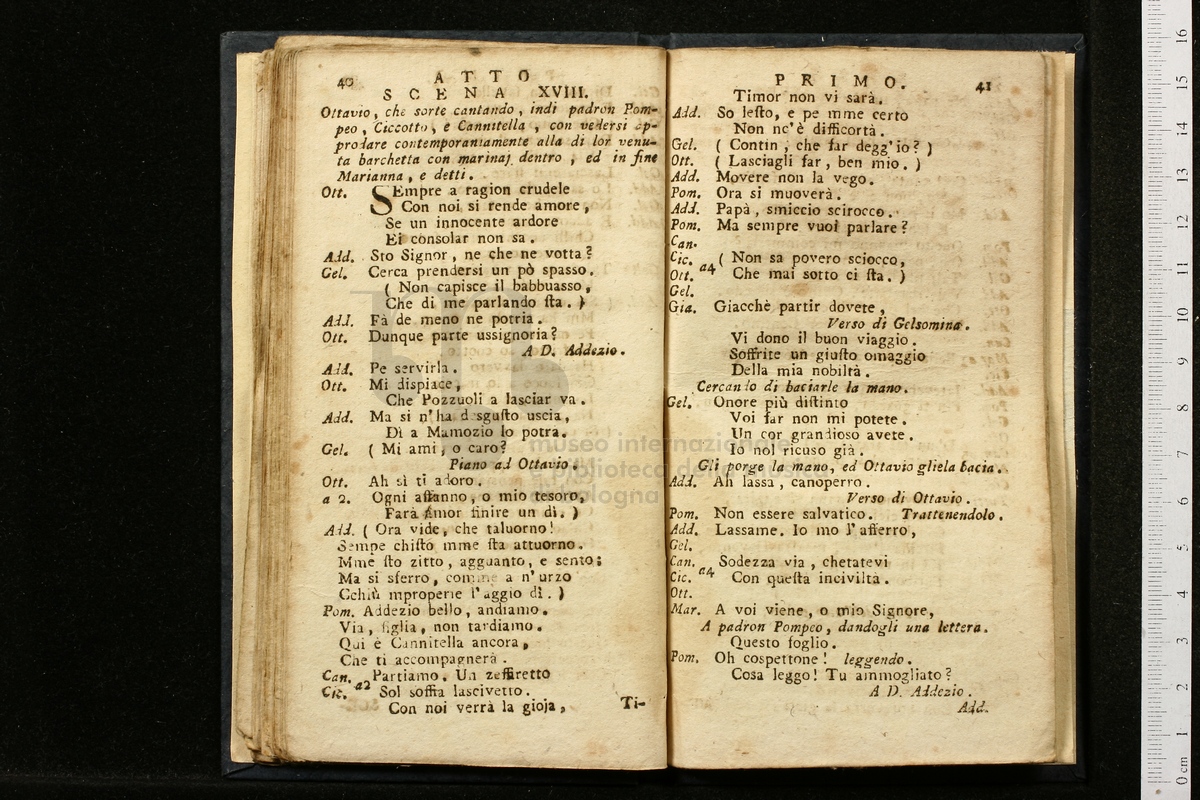 40
ATTO
SCENA XVIII.
Ottavio, che sorte cantando, indi padron Pom-
peo, Ciccotto, e Cannitella, con vedersi ap-
prodare contemporaneamente alla di lor venu-
ta barchetta con marinaj dentro, ed in fine
Marianna, e detti.
Ott. SEmpre a ragion crudele
Con noi si rende amore,
Se un innocente ardore
Ei consolar non sa.
Add. Sto Signor, ne che ne votta?
Gel. Cerca prendersi un pò spasso.
( Non capisce il babbuasso,
Che di me parlando sta. )
Add. Fà de meno ne potria.
Ott. Dunque parte ussignoria?
A D. Addezio.
Add. Pe servirla.
Ott. Mi dispiace,
Che Pozzuoli a lasciar va.
Add. Ma si n'ha desgusto uscia,
Di a Mamozio lo potra.
Gel. ( Mi ami, o caro?
Piano ad Ottavio.
Ott. Ah sì ti adoro.
a 2. Ogni affanno, o mio tesoro,
Farà Amor finire un dì. )
Add. ( Ora vide, che taluorno!
Sempe chisto mme sta attuorno.
Mme sto zitto, agguanto, e sento;
Ma si sferro, comme a n'urzo
Cchiù mproperie l'aggio dì. )
Pom. Addezio bello, andiamo.
Via, figlia, non tardiamo.
Qui è Cannitella ancora,
Che ti accompagnerà.
Can. Partiamo. Un zeffiretto
Cic. a2 Sol soffia lascivetto.
Con noi verrà la gioja,
Ti-
PRIMO.
41
Timor non vi sarà.
Add. So lesto, e pe mme certo
Non nc'è difficortà.
Gel. ( Contin, che far degg'io? )
Ott. ( Lasciagli far, ben mio. )
Add. Movere non la vego.
Pom. Ora si muoverà.
Add. Papà, smiccio scirocco.
Pom. Ma sempre vuoi parlare?
Can.
Cic. ( Non sa povero sciocco,
Ott. a4 Che mai sotto ci sta. )
Gel.
Gia. Giacchè partir dovete,
Verso di Gelsomina.
Vi dono il buon viaggio.
Soffrite un giusto omaggio
Della mia nobiltà.
Cercando di baciarle la mano.
Gel. Onore più distinto
Voi far non mi potete.
Un cor grandioso avete.
Io nol ricuso già.
Gli porge la mano, ed Ottavio gliela bacia.
Add. Ah lassa, canoperro.
Verso di Ottavio.
Pom. Non essere salvatico. Trattenendolo.
Add. Lassame. Io mo l'afferro,
Gel.
Can. Sodezza via, chetatevi
Cic. a4 Con questa inciviltà.
Ott.
Mar. A voi viene, o mio Signore,
A padron Pompeo, dandogli una lettera.
Questo foglio.
Pom. Oh cospettone! leggendo.
Cosa leggo! Tu ammogliato?
A D. Addezio.
Add.
museo internazionale
e biblioteca della musica
di bologna
0 cm 1 2 3 4 5 6 7 8 9 10 11 12 13 14 15 16